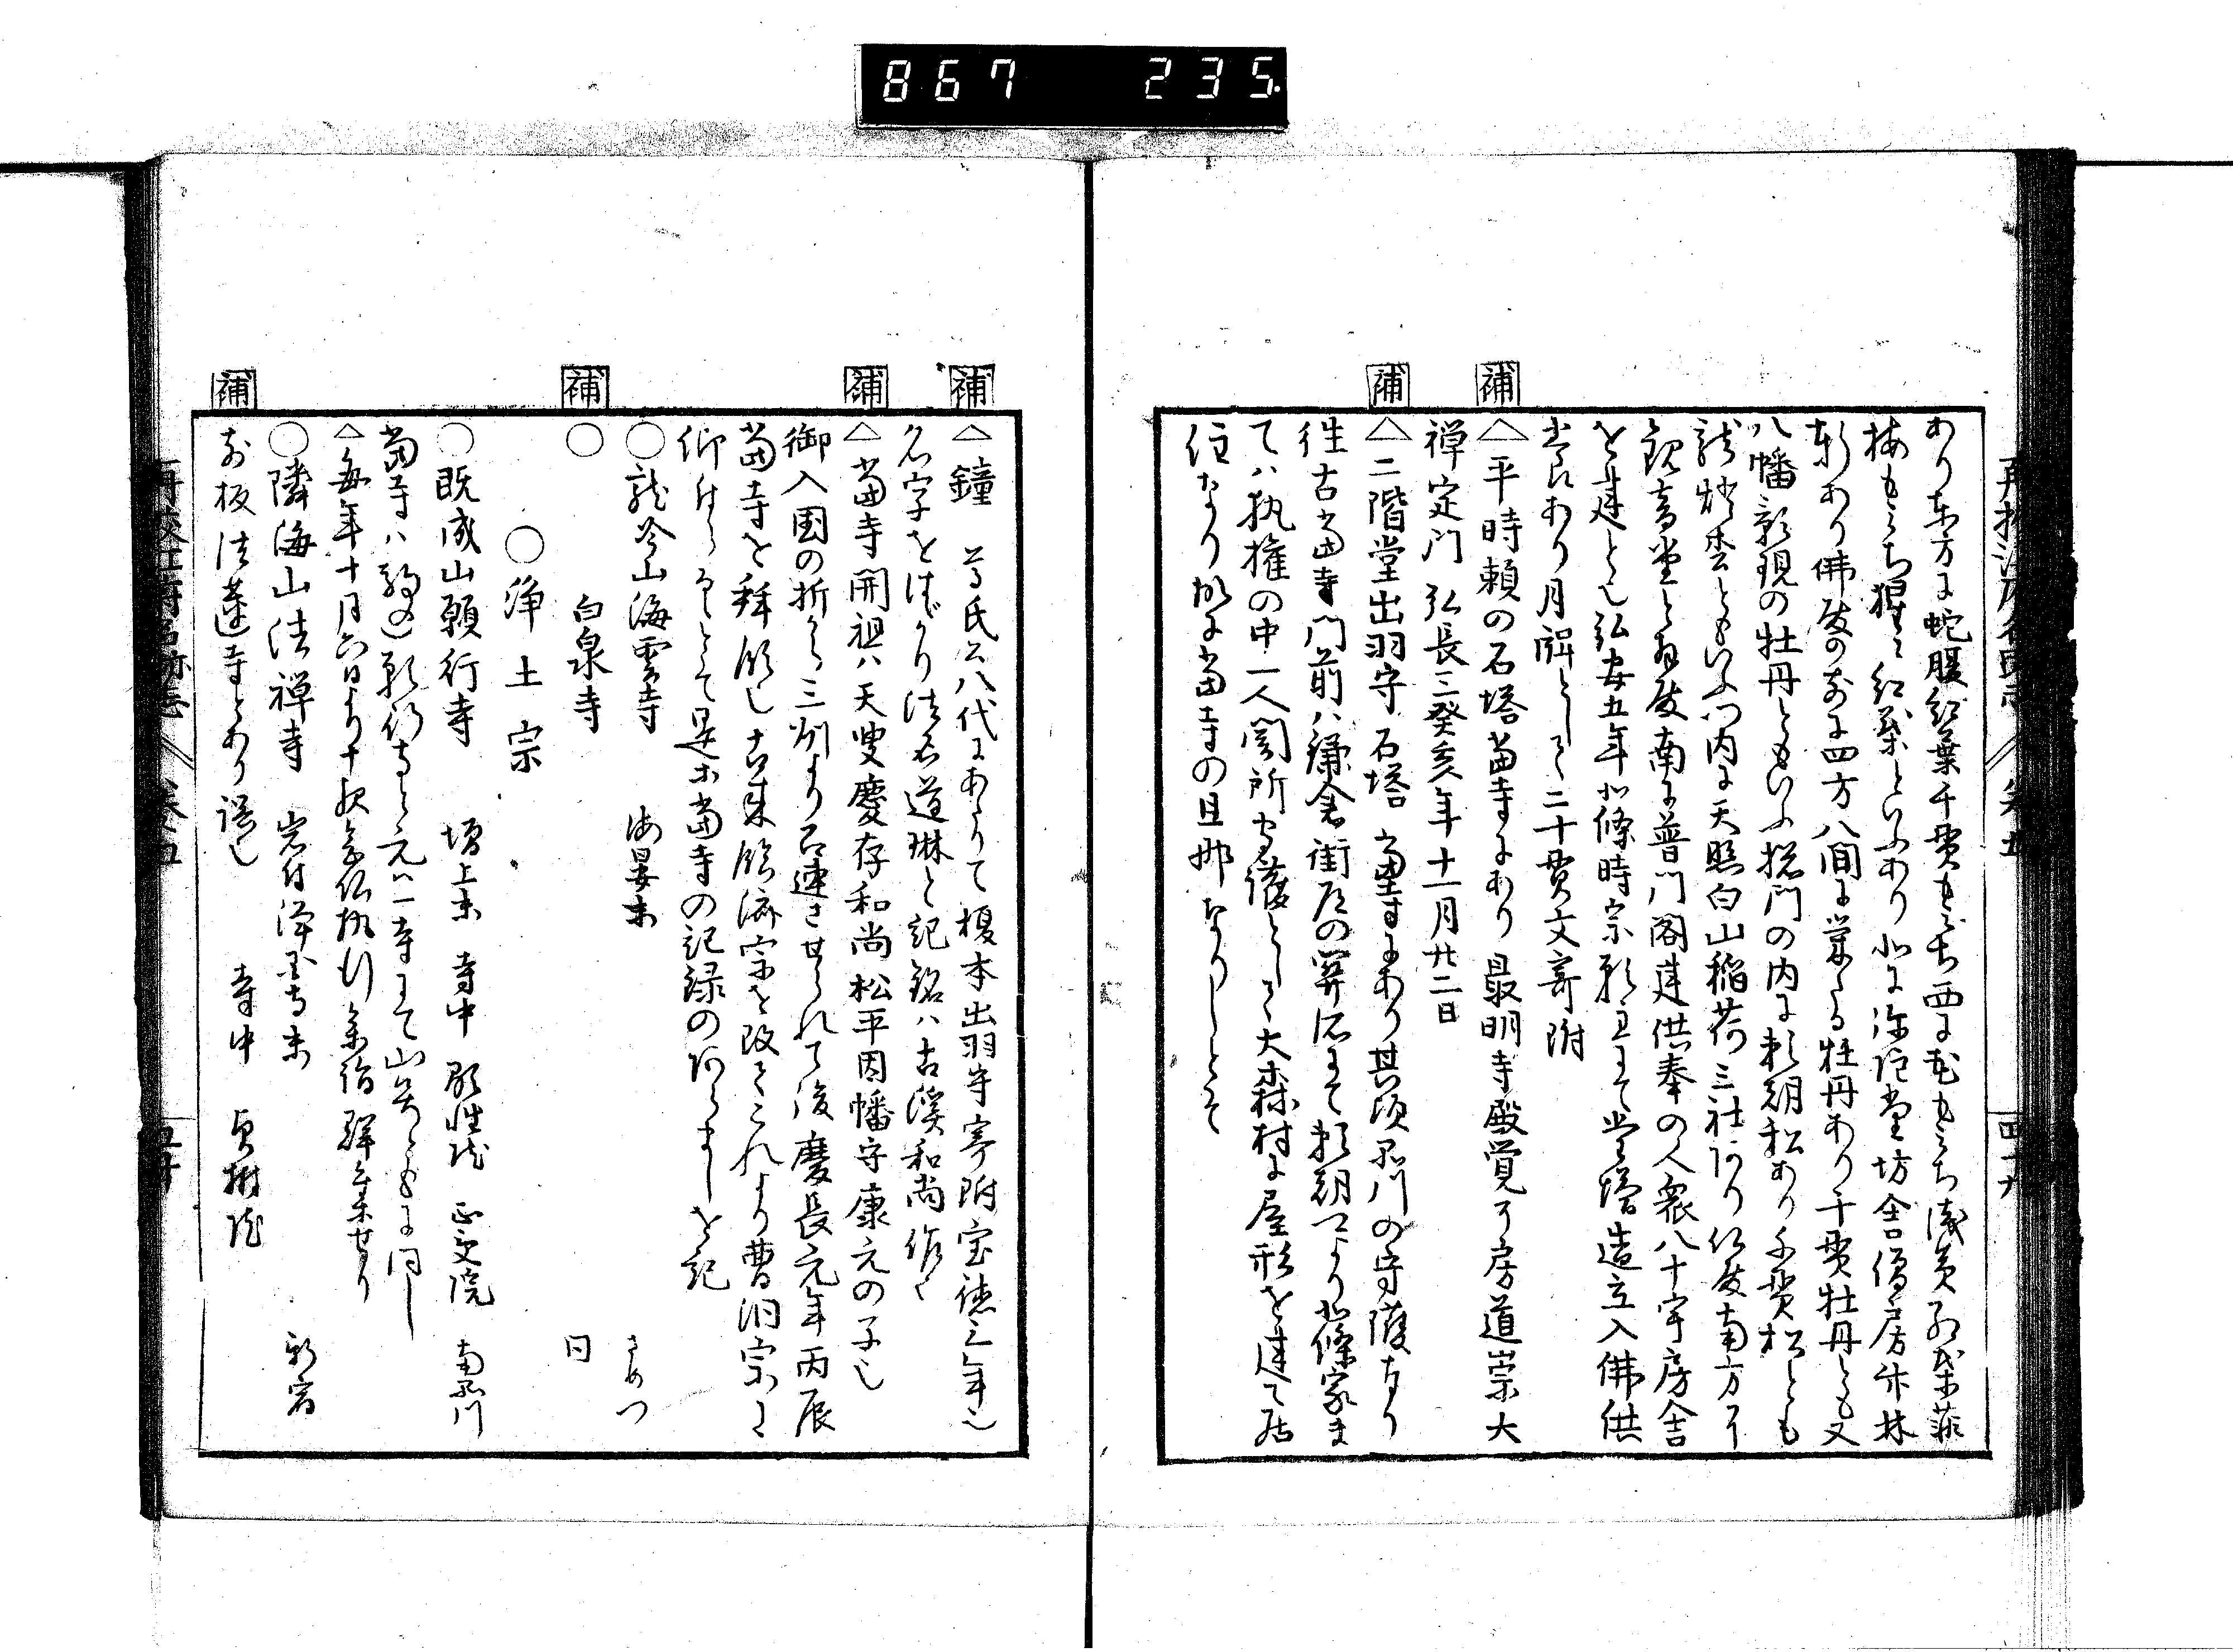 867 235
再校江戸名跡志 巻五 四十九
あり東方に蛇腹紅葉千貫もみぢ西に花もみち浅黄紅葉薄
梅もみち猩々紅葉といふあり北に弥陀堂坊舎僧房竹林
軒あり佛殿の前に四方八間に業たる牡丹あり千貫牡丹とも又
八幡影現の牡丹ともいふ惣門の内に頼朝松あり千貫松とも
龍燈杢ともいふ門内に天照白山稲荷三社あり仏殿南方に
観音堂と殿南に普門閣建供奉の人衆八十宇房舎
を建と也弘安五年北條時宗願主にて堂塔造立入佛供
養あり月牌として二十貫文寄附
補 △平時頼の石塔当寺にあり最明寺殿覚了房道崇大
禅定門 弘長三癸亥年十一月廿二日
補 △二階堂出羽守石塔 当寺にあり其頃品川の守護なり
往古当寺門前ハ鎌倉街道の関所にて頼朝公より北條家ま
てハ執権の中一人関所守護として大森村に屋形を建て居
住なり故に当寺の旦那なりしとそ
補 △鐘 尊氏公八代にあたりて榎本出羽守寄附宝徳三年也
名字をけづり法名道琳と記銘ハ古渓和尚作也
補 △当寺開祖ハ天叟慶存和尚松平因幡守康元の子也
御入国の折から三州より召連させられて後慶長元年丙辰
当寺を拝領し古来臨済宗を改てこれより曹洞宗に
仰付らるゝとそ是亦当寺の記録のあらましを記
○龍吟山海雲寺 海晏寺末 さめつ
補 ○ 白泉寺 同
○浄土宗
○既成山願行寺 増上末 寺中 願性院 正定院 南品川
当寺ハ駒込願行寺と元ハ一寺にて山号ともに同し
△毎年十月六日より十夜念仏執行参詣群集せり
○隣海山法禅寺 岩付浄国寺末 新宿
補 前板法蓮寺とあり誤也 寺中 貞樹院
再校江戸名跡志 巻五 五十